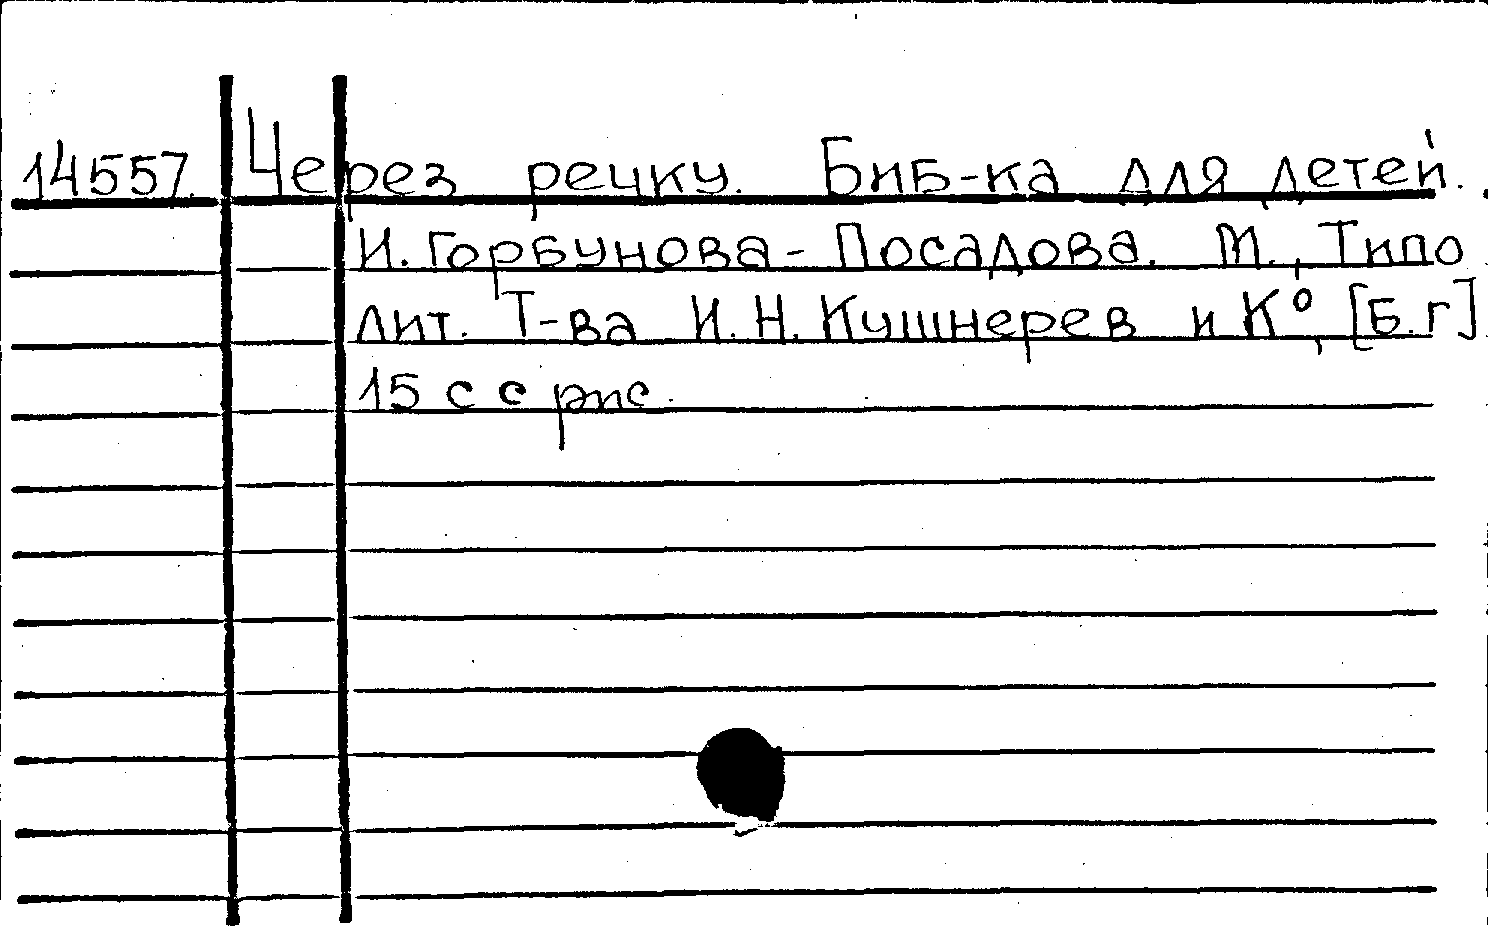 14557. Через речку. Биб-ка для детей.
И. Горбунова-Посадова. М., Типо
лит. Т-ва И. Н. Кушнерев и К°, [Б. г]
15 с с рис.